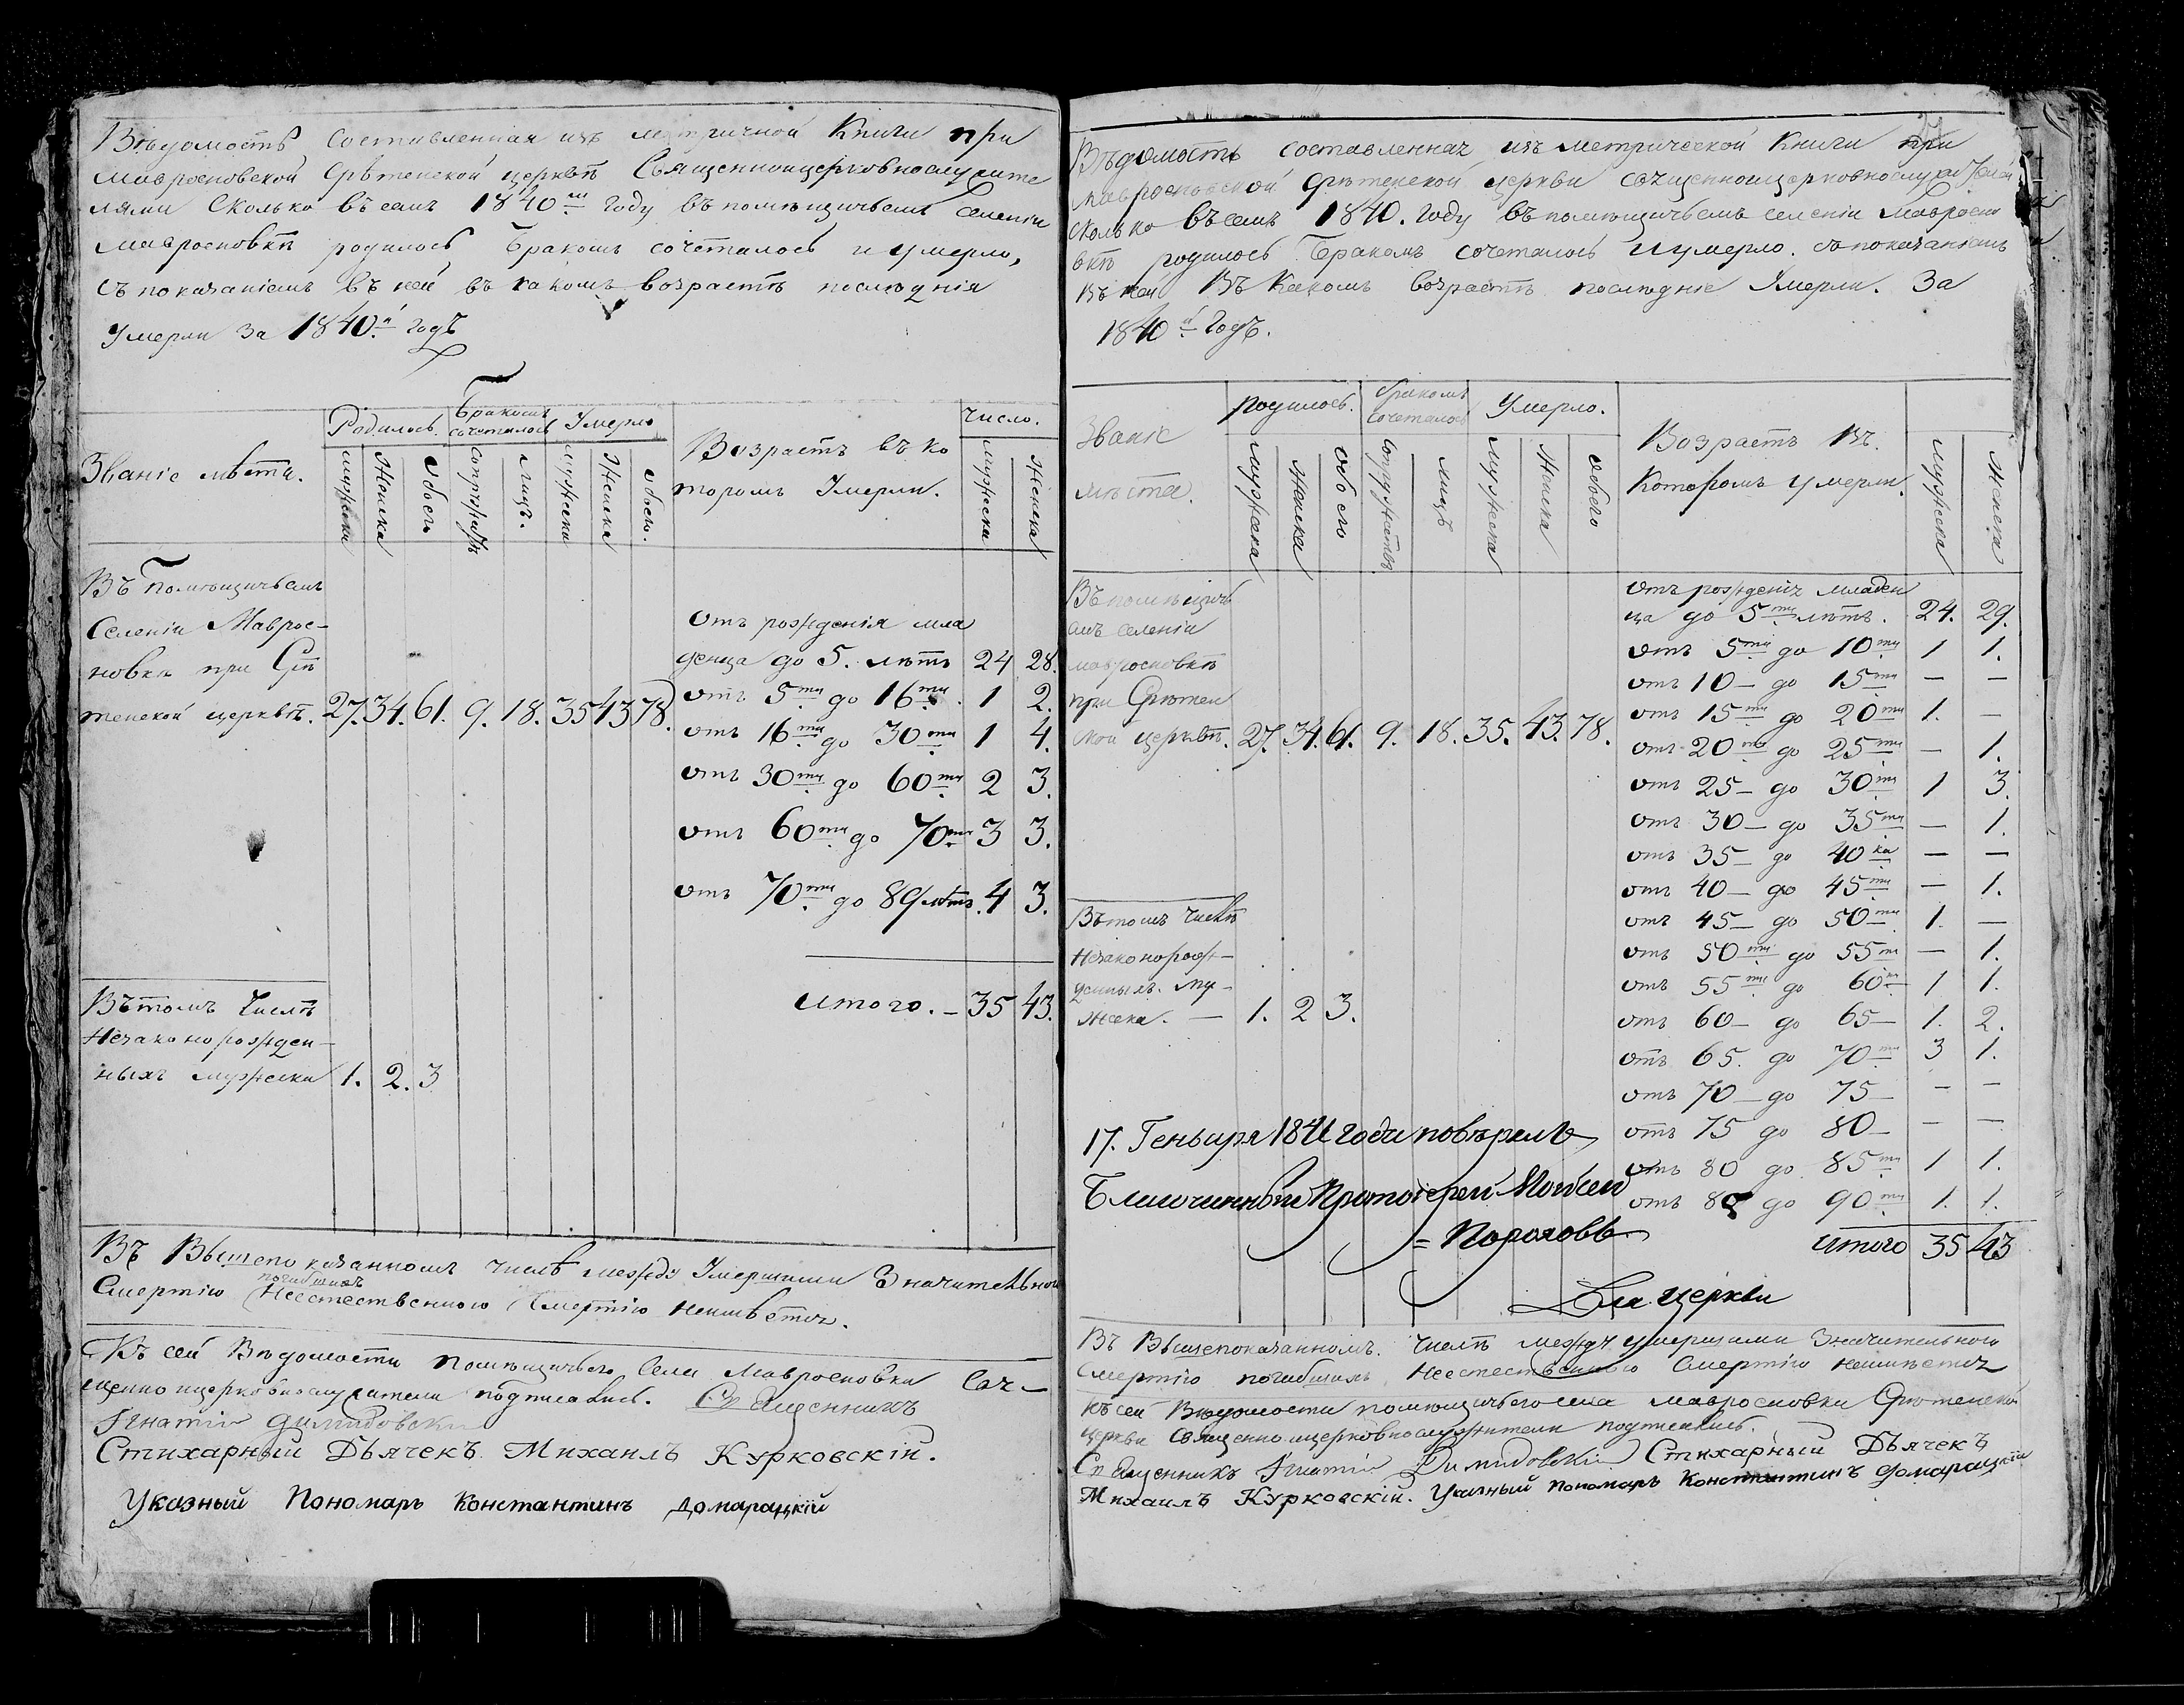 Вѣдомость составленная изъ метричной Книги при
Мавросновской Срѣтенской церквѣ Священноицерковнослужите
лями Сколько въ семъ 1840м году въ помѣщичьемъ селеніи
Мавросновкѣ родилось Бракомъ сочеталось и умерло,
съ показаніемъ въ ней въ какомъ возрастѣ послѣднія
Умерли за 1840й годъ
Званіе мѣста.
Родилось.
Бракомъ сочеталось
Умерло
Возрастъ въ ко
торомъ Умерли.
Число.
мужеска
Женска
Обоего
Супружествъ
Лицъ.
мужеска
Женска
Обоего.
мужеска
Женска
Въ помѣщичьемъ
Селеніи Маврос-
новка при Срѣ
тенской церквѣ. 27. 34. 61. 9. 18. 35 43 78.
отъ рожденія мла
денца до 5. лѣтъ 24 28.
отъ 5ти до 16ти. 1 2.
отъ 16ти до 30ти 1 4.
отъ 30ти до 60ти 2 3.
отъ 60ти до 70ти 3 3.
отъ 70ти до 89 лѣтъ. 4 3.
Итого. – 35 43.
Вътомъ Числѣ
Незаконорожден-
ныхъ мужеска 1. 2. 3
Въ Вышепоказанномъ числѣ между Умершими Значительною
погибшихъ
Смертію Неестественною Смертію неимѣется.
Къ сей Вѣдомости помѣщичьего Села Мавросновки Свя-
щенноицерковнослужители подписались. Священникъ
Игнатій
Стихарный Дьячекъ Михаилъ Курковскій.
Указный Пономарь Константинъ Домарацкій
Вѣдомость составленная изъ метрической Книги при
Мавросновской Срѣтенской церкви священноицерковнослужителями
сколько въ семъ 1840. году въ помѣщичьемъ селеніи Мавросно
вкѣ родилось Бракомъ сочеталось и умерло. съ показаніемъ
въ ней Въ Какомъ возрастѣ послѣдніе Умерли. За
1840й годъ.
Званіе
мѣста.
родилось.
бракомъ
сочеталось
Умерло.
Возрастъ Въ.
Которомъ умерли.
мужеска
Женска
обоего
супружествъ
лицъ
мужеска
Женска
обоего
мужеска
Женска
Въ помѣщичь
емъ селеніи
мавросновкѣ
при Срѣтен
ской церквѣ. 27. 34. 61. 9. 18. 35. 43. 78.
отъ рожденія младен
ца до 5ти лѣтъ. 24. 29.
отъ 5ти до 10ти 1 1.
отъ 10 – до 15ти – –
отъ 15ти до 20ти 1. –
отъ 20ти до 25ти – 1.
отъ 25 – до 30ти 1 3.
отъ 30 – до 35ти – 1.
отъ 35 – до 40ка – –
отъ 40 – до 45ти – 1.
отъ 45 – до 50ти 1. –
отъ 50ти до 55ти – 1.
отъ 55ти до 60ти 1 1.
отъ 60 – до 65 – 1. 2.
отъ 65. до 70ти 3 1.
отъ 70 – до 75 – – –
отъ 75 до 80 – – –
отъ 80 до 85ти 1 1.
отъ 85 до 90ти 1. 1.
Итого 35 43
Вътомъ Числѣ
Незаконорож-
денныхъ. му-
жеска. – 1. 2 3.
17. Генваря 1841 года повѣрялъ
Благочинный Протоіерей Моисей
= Пороховъ
Для Церкви
Въ Вышепоказанномъ. Числѣ между умершими Значительного
Смертію погибшихъ Неестественною Смертію неимѣется
Къ сей Вѣдомости помѣщичьего села мавросновки Срѣтенской
церкви Священноицерковнослужители подписались.
Священникъ Игнатій Стихарный Дьячекъ
Михаилъ Курковскій. Указный Пономарь Константинъ Домарацкій